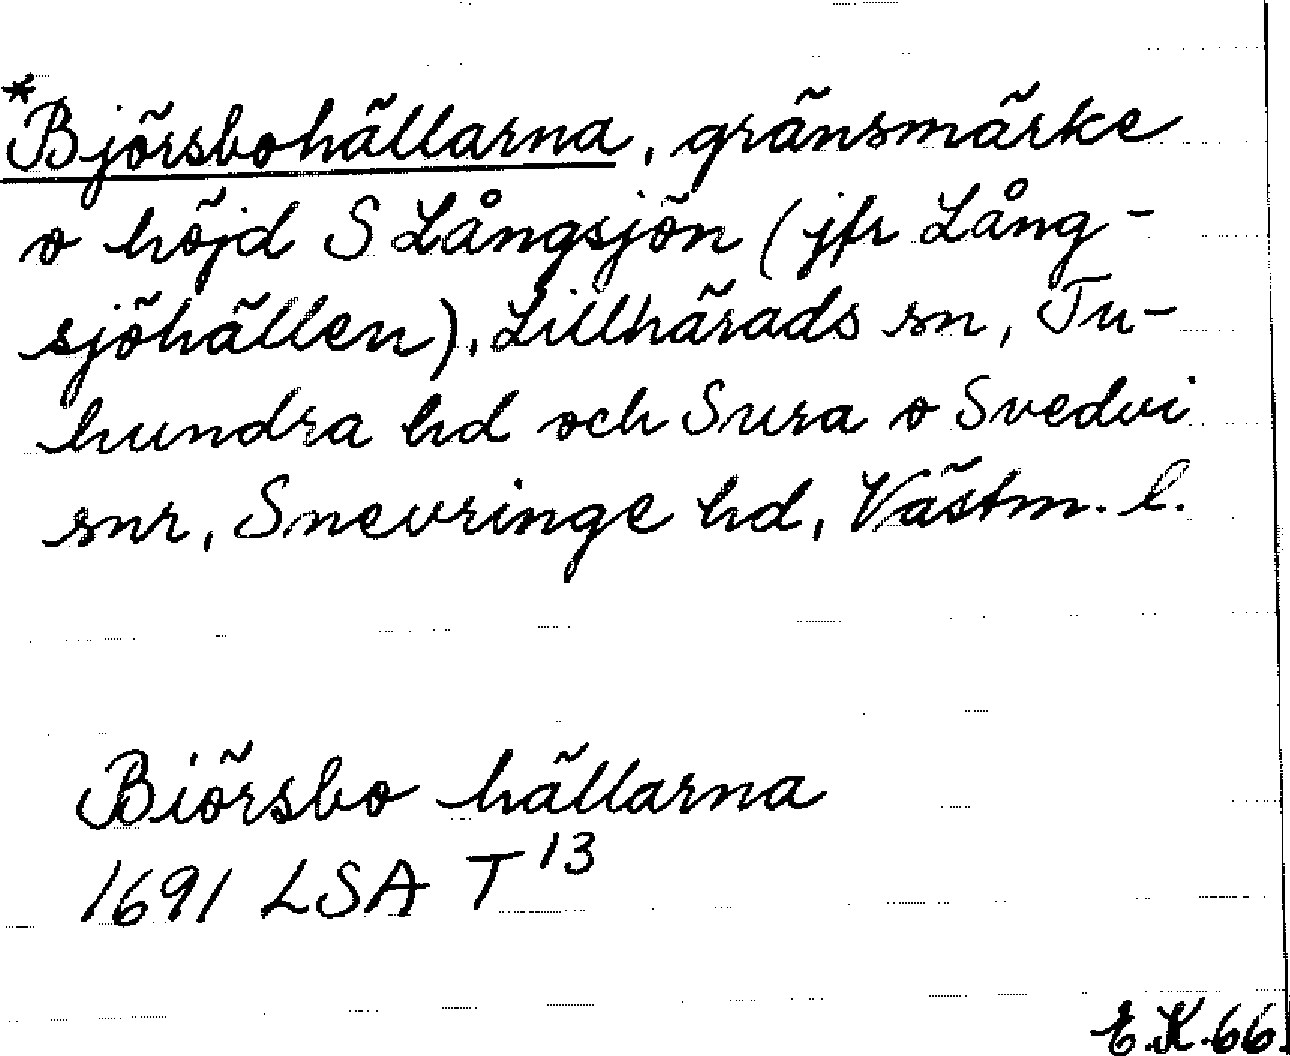 *Björsbohällarna, gränsmärke
o höjd S Långsjön (jfr Lång-
sjöhällen), Lillhärads sn, Tu-
hundra hd och Sura o Svedvi
snr, Snevringe hd, Västm. l.
Biörsbo hällarna
1691 LSA T 13
E.K. 66.